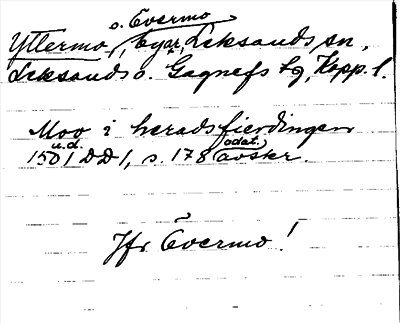 o. Övermo
Yttermo, byar, Leksands sn,
Leksands o. Gagnefs tg, Kopp. l.
Moo i heradsfierdingen
u.d. odat.
1501 DD1, s. 178 avskr.
Jfr Övermo!